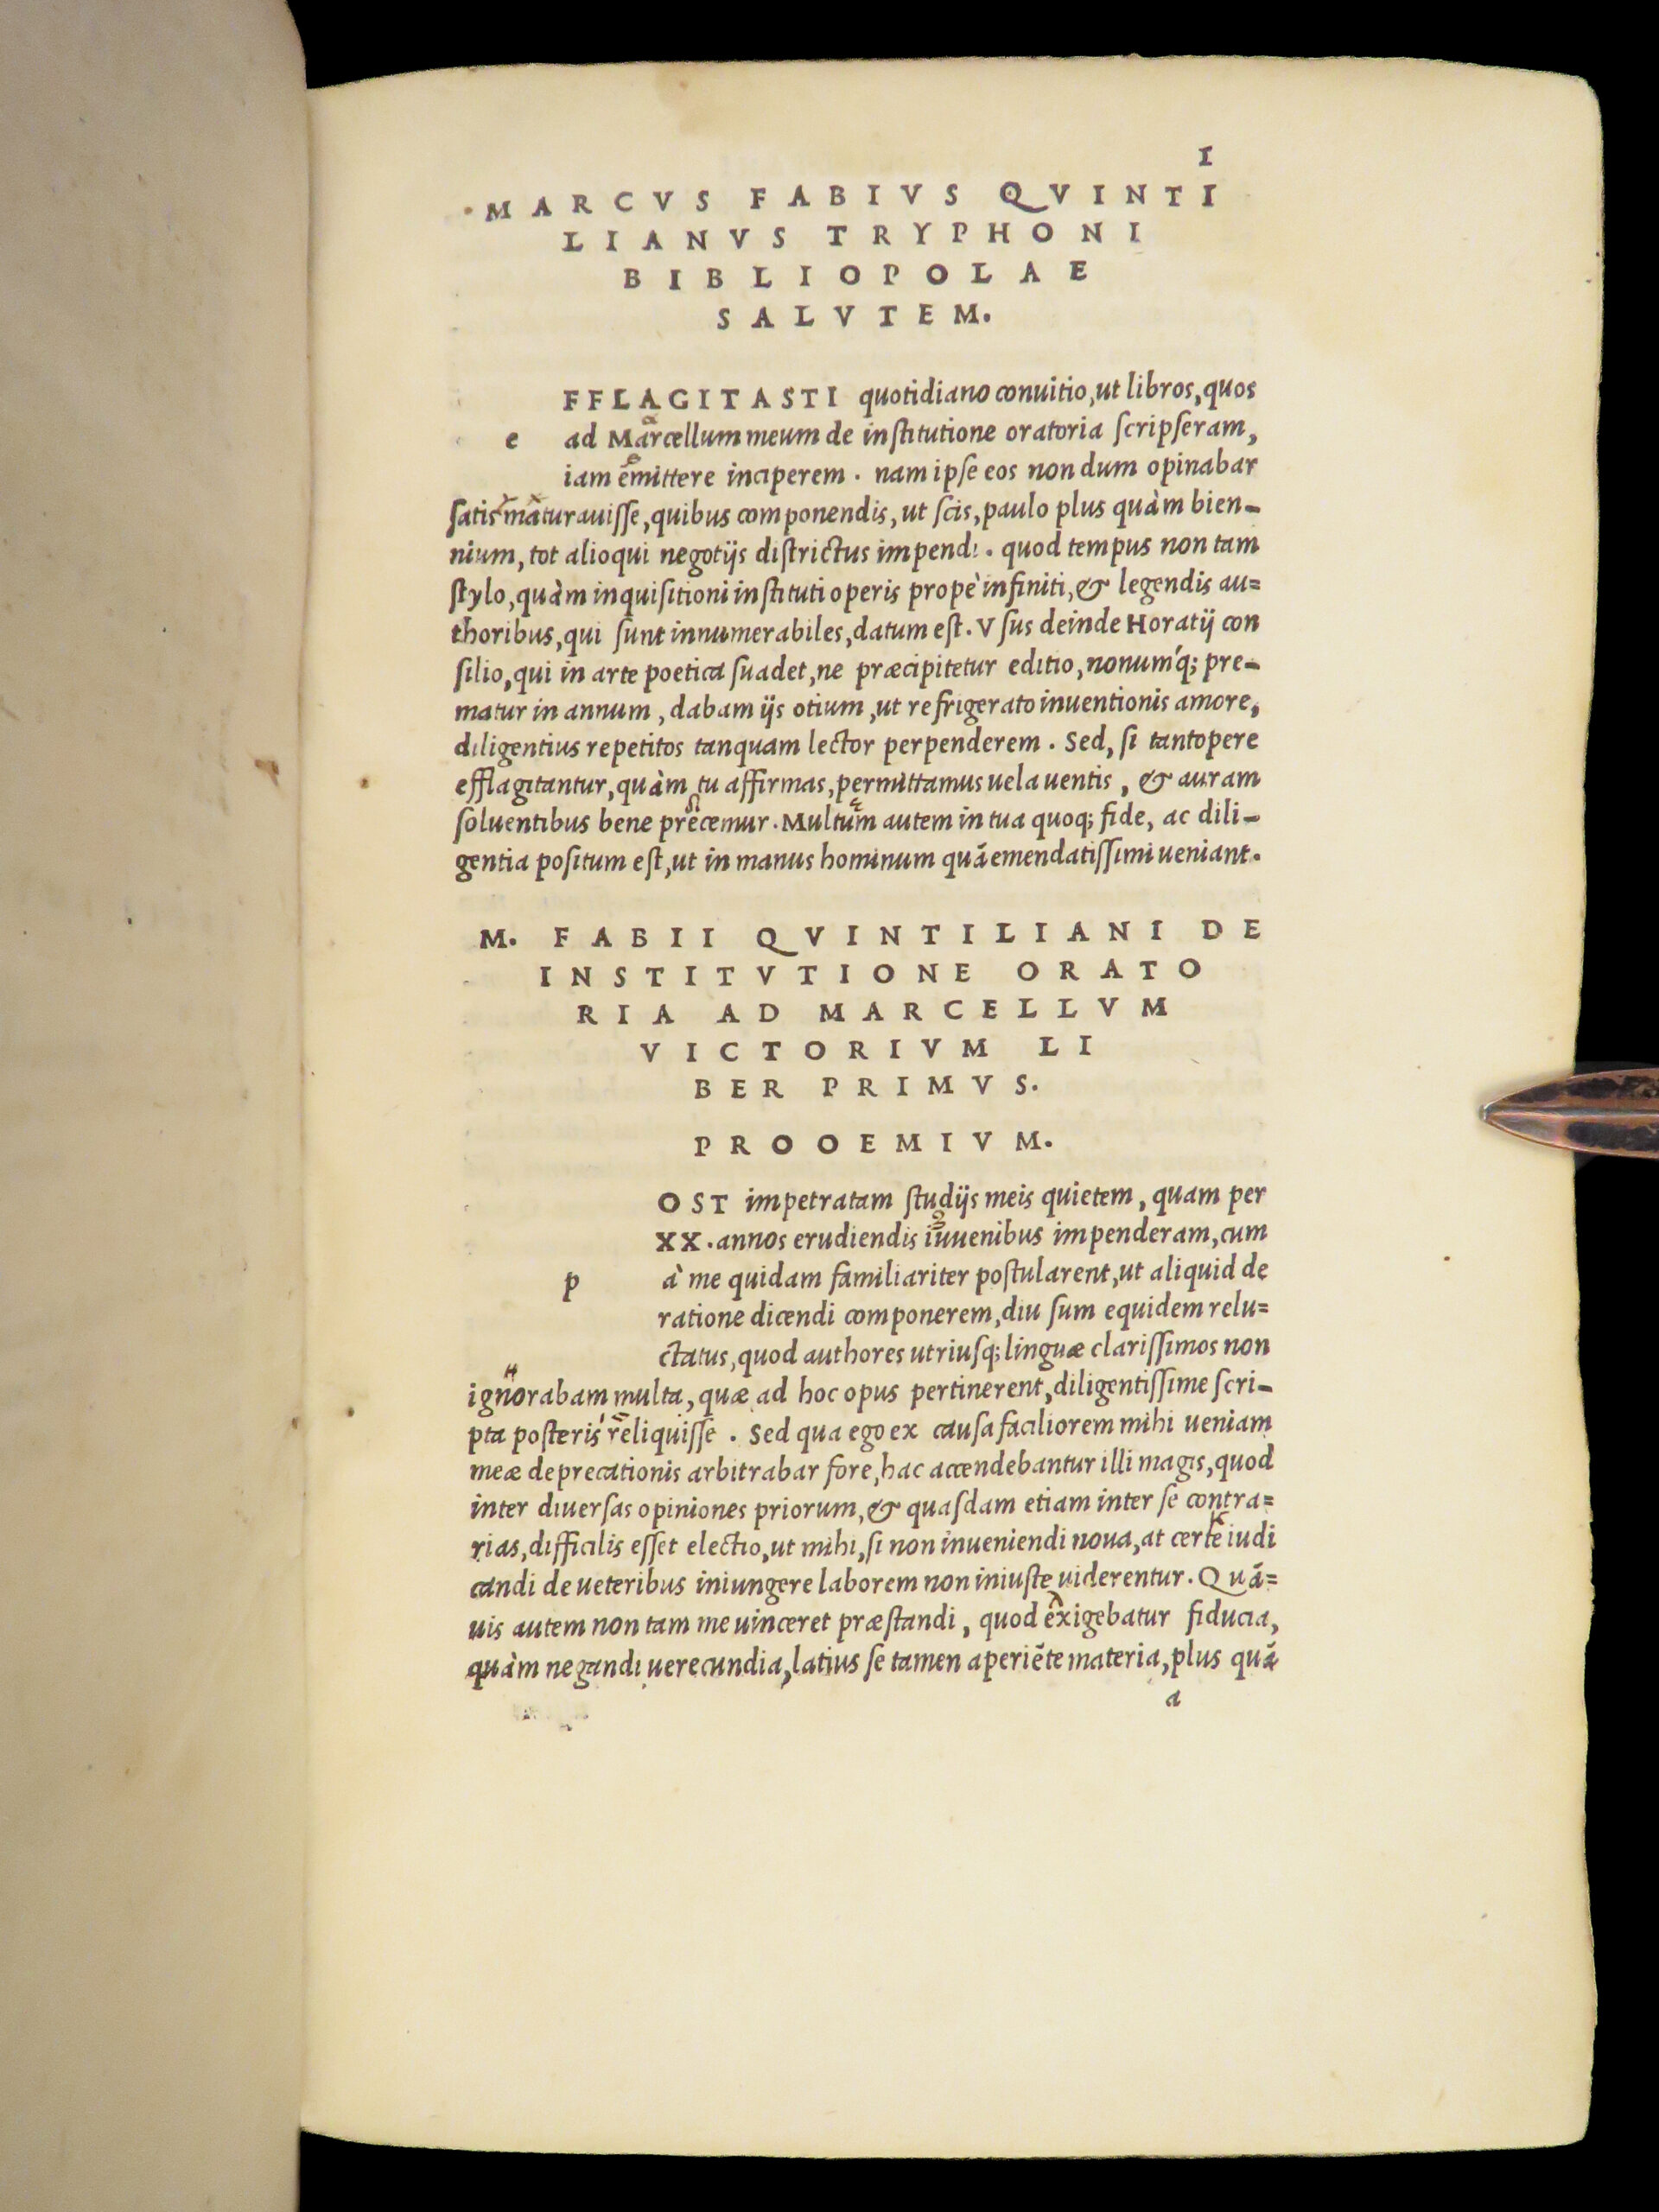 1
MARCVS FABIVS QVINTI
LIANVS TRYPHONI
BIBLIOPOLAE
SALVTEM.
FFLAGITASTI quotidiano conuitio, ut libros, quos
e ad Marcellum meum de inſtitutione oratoria ſcripſeram,
iam emittere inciperem . nam ipſe eos non dum opinabar
ſatis maturauiſſe, quibus componendis, ut ſcis, paulo plus quàm bien-
nium, tot alioqui negotijs diſtrictus impendi . quod tempus non tam
ſtylo, quàm inquiſitioni inſtituti operis propè infiniti, & legendis au=
thoribus, qui ſunt innumerabiles, datum eſt . Vſus deinde Horatij con
ſilio, qui in arte poetica ſuadet, ne præcipitetur editio, nonum'q; pre-
matur in annum , dabam ijs otium , ut refrigerato inuentionis amore,
diligentius repetitos tanquam lector perpenderem . Sed, ſi tantopere
efflagitantur, quàm tu affirmas, permittamus uela uentis , & auram
ſoluentibus bene precemur . Multum autem in tua quoq; fide, ac dili-
gentia poſitum eſt, ut in manus hominum quā emendatiſſimi ueniant.
M. FABII QVINTILIANI DE
INSTITVTIONE ORATO
RIA AD MARCELLVM
VICTORIVM LI
BER PRIMVS.
PROOEMIVM.
OST impetratam ſtudijs meis quietem, quam per
XX. annos erudiendis iuuenibus impenderam, cum
p à me quidam familiariter poſtularent, ut aliquid de
ratione dicendi componerem, diu ſum equidem relu=
ctatus, quod authores utriuſq; linguæ clariſſimos non
ignorabam multa, quæ ad hoc opus pertinerent, diligentiſſime ſcri-
pta poſteris reliquiſſe . Sed qua ego ex cauſa faciliorem mihi ueniam
meæ deprecationis arbitrabar fore, hac accendebantur illi magis, quod
inter diuerſas opiniones priorum, & quaſdam etiam inter ſe contra=
rias, difficilis eſſet electio, ut mihi, ſi non inueniendi noua, at certe iudi
candi de ueteribus iniungere laborem non iniuſte uiderentur . Quā=
uis autem non tam me uinceret præſtandi , quod exigebatur fiducia,
quàm negandi uerecundia, latius ſe tamen aperiēte materia, plus quā
a